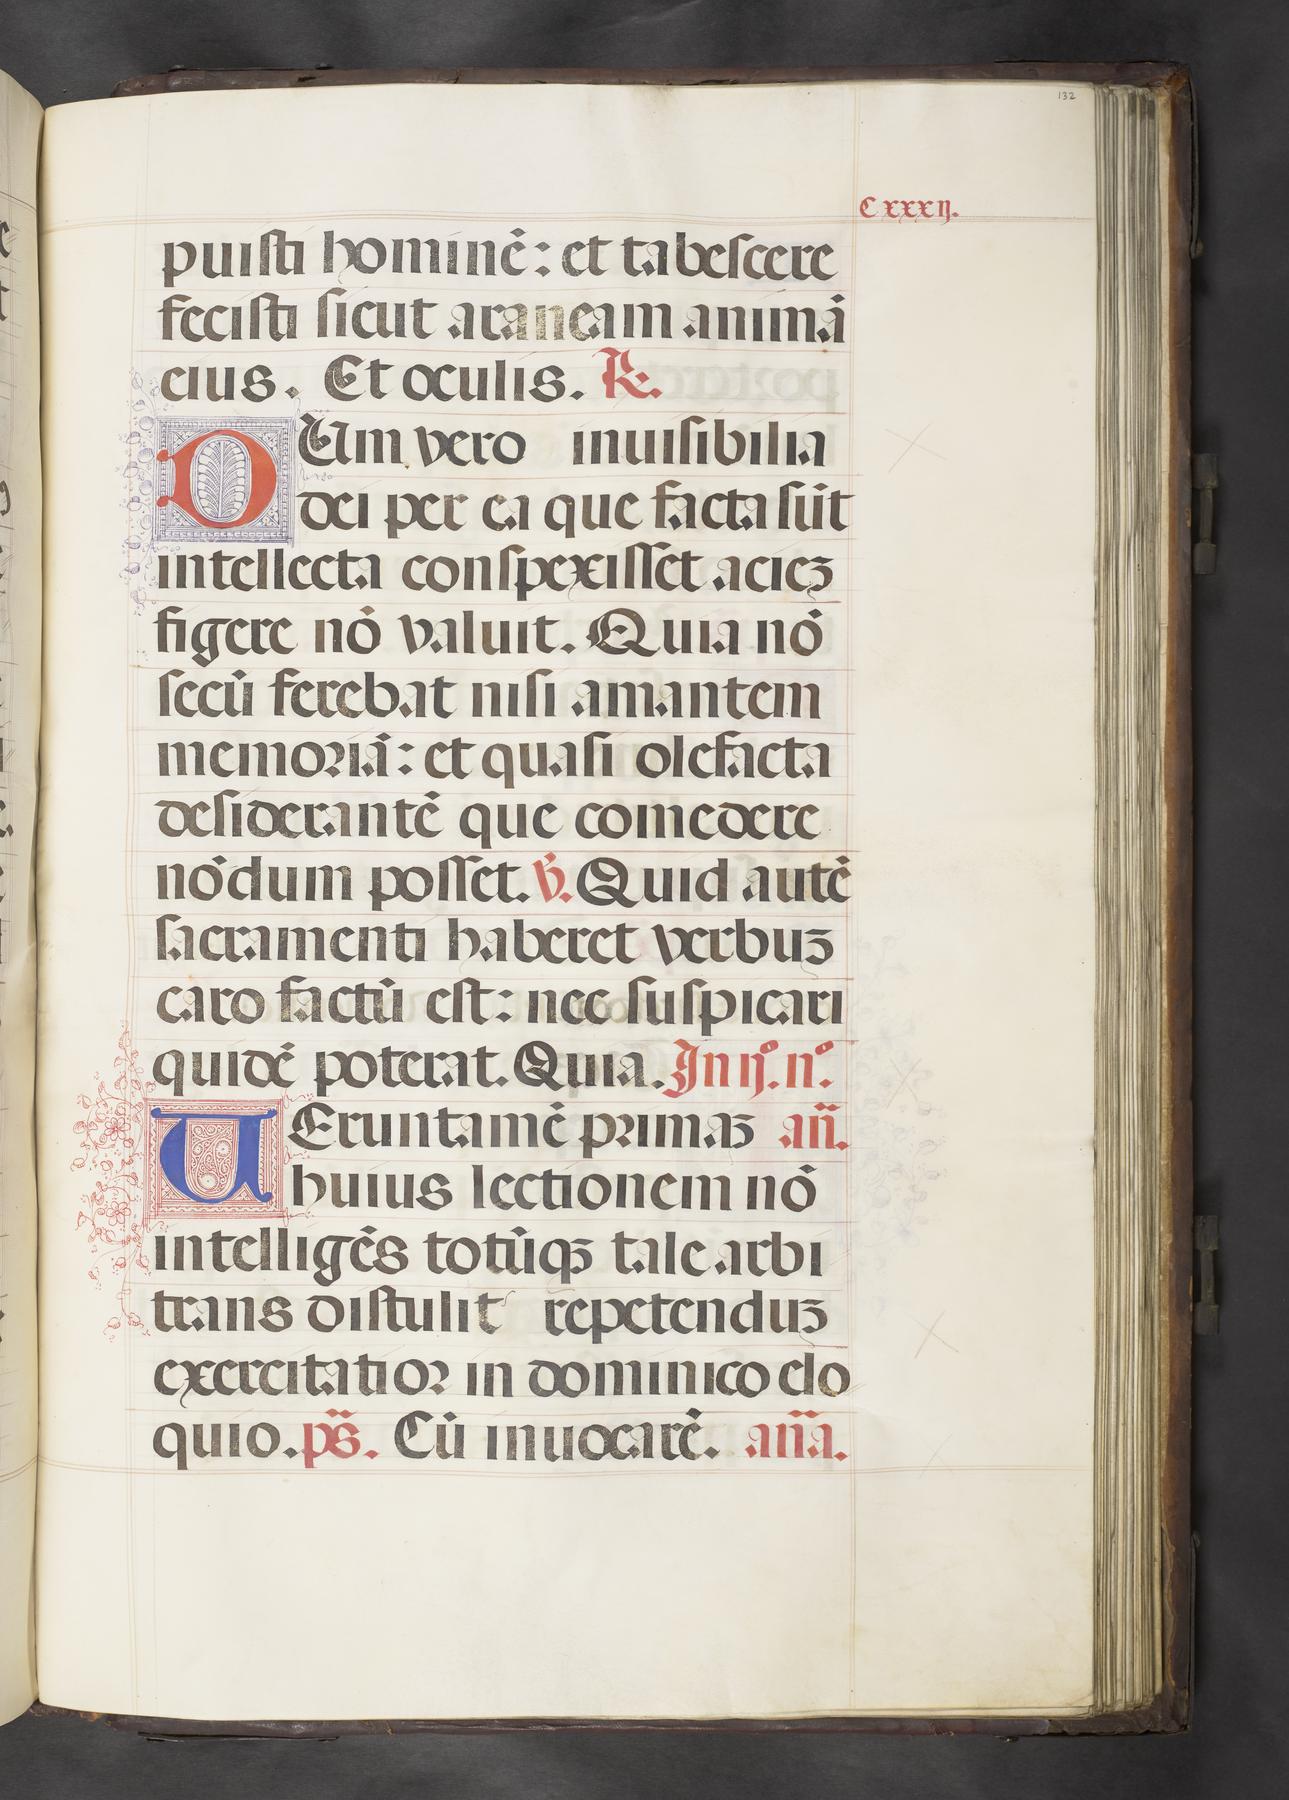 132
Cxxxij.
puisti hominē: et tabescere
fecisti sicut araneam animā
eius. Et oculis. R.
DUm vero inuisibilia
dei per ea que facta sūt
intellecta conspexisset aciez
figere nō valuit. Quia nō
secū ferebat nisi amantem
memoriā: et quasi olefacta
desiderantē que comedere
nōdum posset. V. Quid autē
sacramenti haberet verbuz
caro factū est: nec suspicari
quidē poterat. Quia. In ij.º n.º
UEruntamē primaz añ.
huius lectionem nō
intelligēs totūqz tale arbi
trans distulit repetenduz
exercitatior in dominico elo
quio. ps. Cū inuocarē. aña.